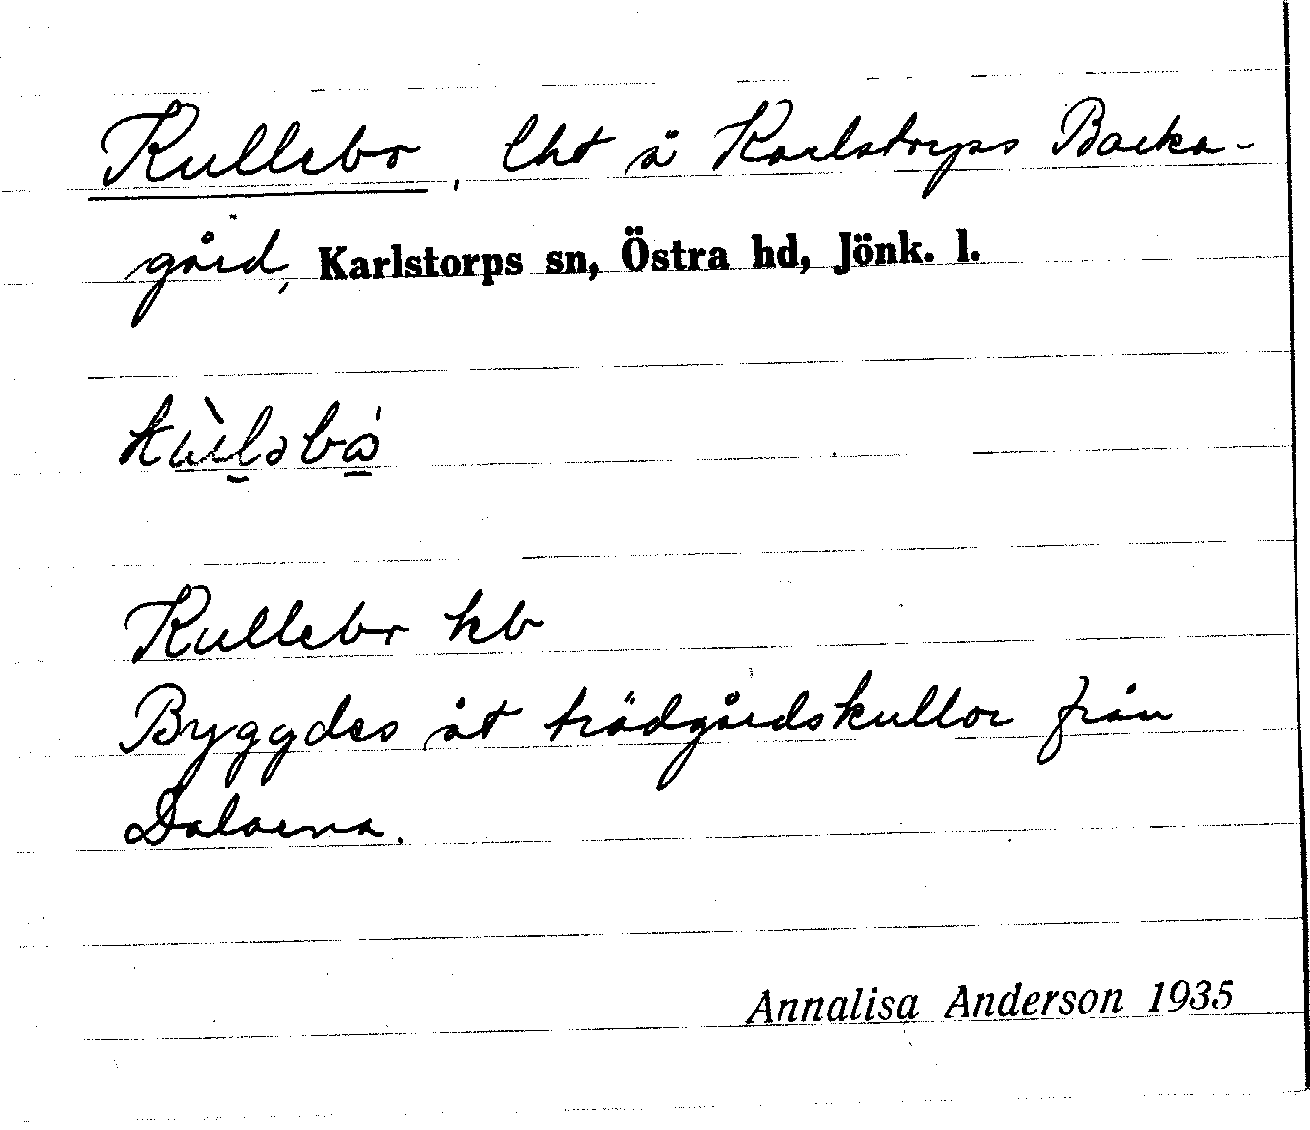 Kullebo, lht å Karlstorps Backa-
gård, Karlstorps sn, Östra hd, Jönk. l.
Kullebo kb
Byggdes åt trädgårdskullor från
Dalarna.
Annalisa Anderson 1935